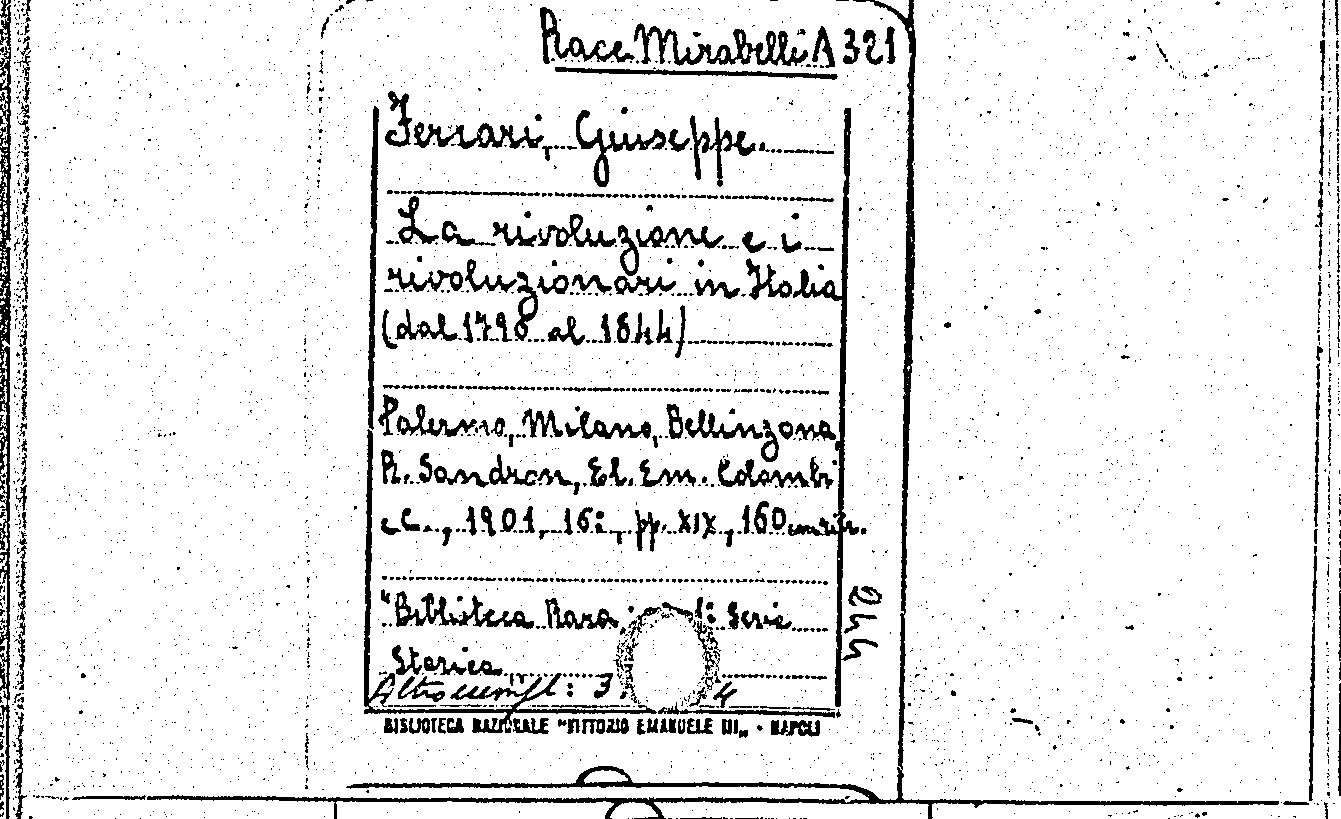 Race Mirabelli A 321
Ferrari, Giuseppe.
La rivoluzione e i
rivoluzionari in Italia
(dal 1796 al 1844)
Palermo, Milano, Bellinzona,
R. Sandron, El. Em. Colombi
e C., 1901, 16º, pp. XIX, 160
"Biblioteca Rara 1ª Serie
Storica
Altro esempl: 3 4
BIBLIOTECA NAZIONALE "VITTORIO EMANUELE III„ - NAPOLI
244